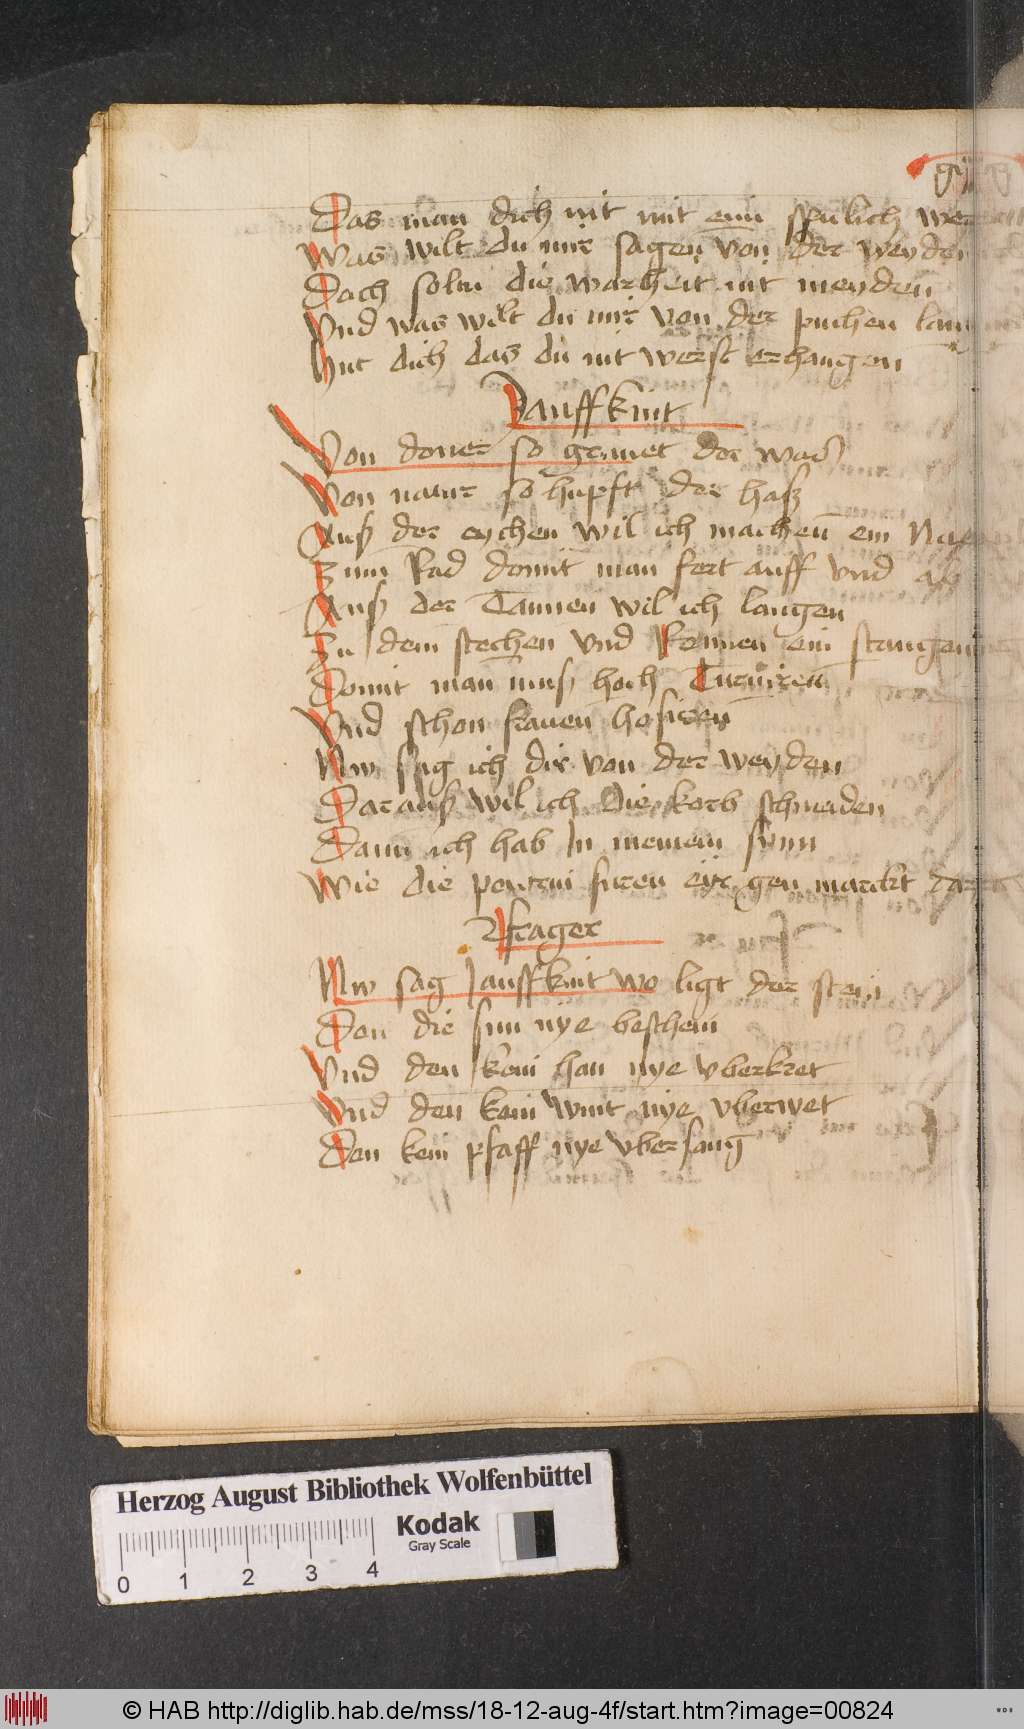 Das man dich nit mit eim spulich
Was wilt du mir sagen von der weyden
Doch soltu die warheit nit meyden
Vnd was wilt du mir von der puchen
Hut dich das du nit werst erhangen
Lauffkint
Von doner so genuet der was
Von natur so hupft der hasz
Ausz der eychen wil ich machen ein
Zum Rad domit man fert auff vnd ab
Ausz der Tannen wil ich langen
Zu dem stechen vnd Rennen ein stangen
Domit man musz hoch Turniren
Vnd schon frauen hofiren
Nw sag ich dir von der weyden
Darausz wil ich die korb schneiden
Dann ich hab In meinem synn
Wie die pewrin furen eyr gen marckt
Frager
Nw sag lauffkint wo ligt der stein
Den die sun nye beschein
Vnd den kein han nye vberkret
Vnd den kein wint nye vberwet
Den kein pfaff nye vbersang
Herzog August Bibliothek Wolfenbüttel
Kodak
Gray Scale
0 1 2 3 4
© HAB http://diglib.hab.de/mss/18-12-aug-4f/start.htm?image=00824